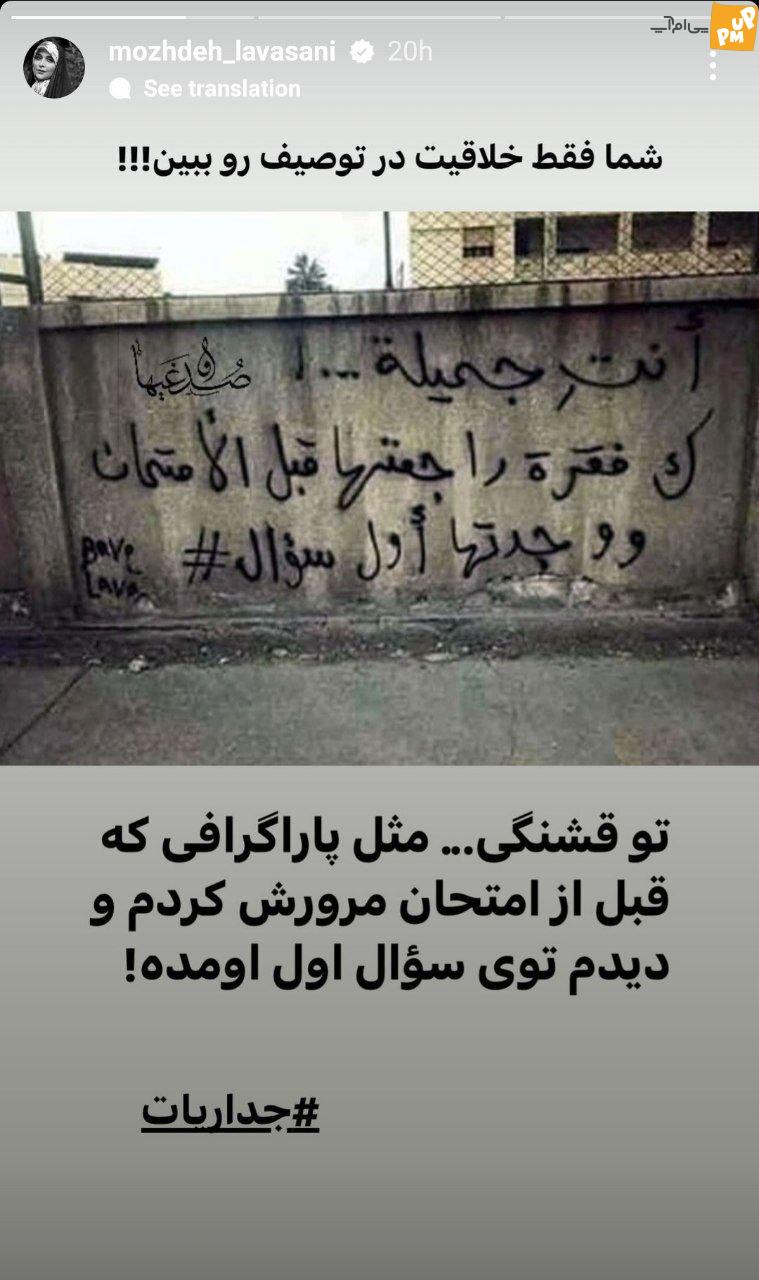 پی‌ام‌آپ
UP
PM
mozhdeh_lavasani 20h
See translation
شما فقط خلاقیت در توصیف رو ببین!!!
أنتِ جميلة ...!
ك فقرة راجعتها قبل الأمتحان
ووجدتها أول سؤال#
تو قشنگی... مثل پاراگرافی که
قبل از امتحان مرورش کردم و
دیدم توی سؤال اول اومده!
#جداریات